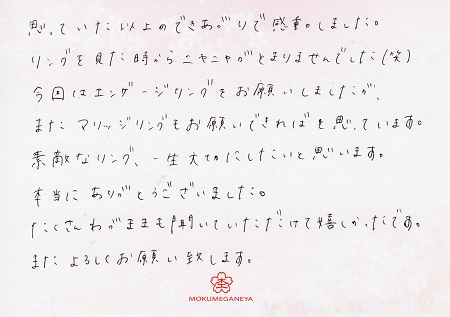 思っていた以上のできあがりで感動しました。
リングを見た時からニヤニヤがとまりませんでした(笑)
今回はエンゲージリングをお願いしましたが、
またマリッジリングもお願いできればを思っています。
素敵なリング、一生大切にしたいと思います。
本当にありがとうございました。
たくさんわがままも聞いていただけて嬉しかったです。
またよろしくお願い致します。
MOKUMEGANEYA